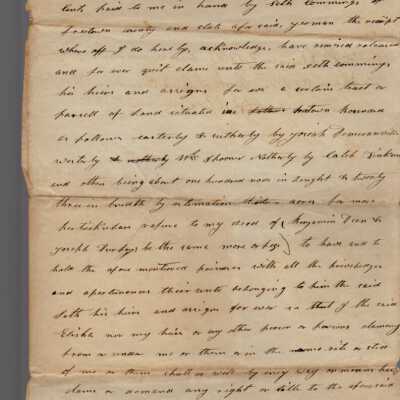 paid to me in hand by Seth Cummings of
county and state afor said, yeoman the receipt
where off I do hereby, acknowledge, have remised released
and for ever quit claime unto the said Seth Cummings
his heirs and assigns for ever a certain tract or
parsell of Land situated in
as follows easterly & sutherly by Joseph
westerly Wm Northerly by Caleb
and others being about one hundred rods in lenght & twenty
three in breadth by estemation acres for more
perticukular refure to my deed of (Benjamin Deen &
Joseph be the same more or less) to have and to
hold the afore mentioned primises with all the priviledges
and apertinances thereunto belonging to him the said
Seth his heirs and assigns for ever so that I the said
Elisha nor my heirs or any other person or persons claiming
from or under me or them or in the name rite or stead
of me or them shall or will by eney way or means have
claime or demand any right or title to the aforesaid